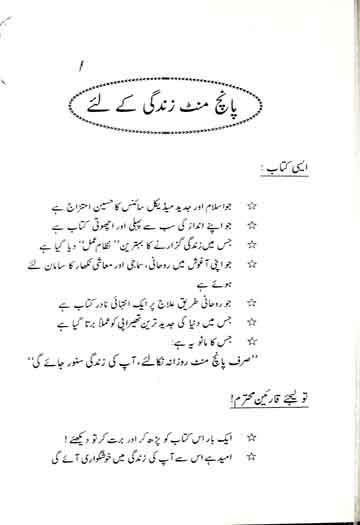 پانچ منٹ زندگی کے لئے
ایسی کتاب :
☆ جو اسلام اور جدید میڈیکل سائنس کا حسین امتزاج ہے
☆ جو اپنے انداز کی سب سے پہلی اور اچھوتی کتاب ہے
☆ جس میں زندگی گزارنے کا بہترین "نظام عمل" دیا گیا ہے
☆ جو اپنی آغوش میں روحانی، سماجی اور معاشی نکھار کا سامان لئے
ہوئے ہے
☆ جو روحانی طریق علاج پر ایک انتہائی نادر کتاب ہے
☆ جس میں دنیا کی جدید ترین تھیراپی کو عملاً برتا گیا ہے
☆ جس کا مانو یہ ہے:
"صرف پانچ منٹ روزانہ نکالئے، آپ کی زندگی سنور جائے گی"
تو لیجئے قارئین محترم!
☆ ایک بار اس کتاب کو پڑھ کر اور برت کر تو دیکھئے!
☆ امید ہے اس سے آپ کی زندگی میں خوشگواری آئے گی